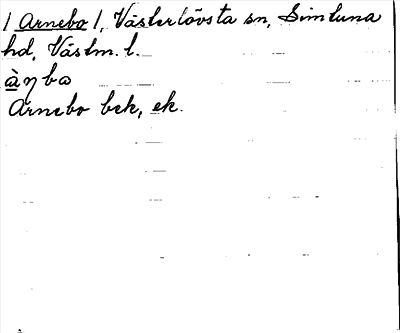 / Arnebo /, Västerlövsta sn, Simtuna
hd, Västm. l.
Arnebo bek, ek.